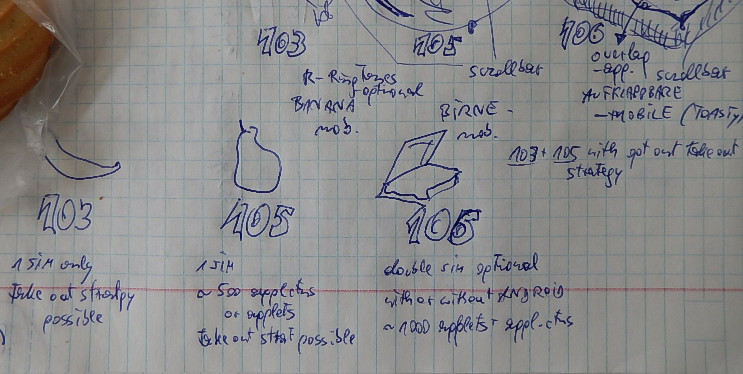 103
105
106
scrollbar
overlap
-app.
scrollbar
R-Ringtones
-optional
BANANA
mob.
BIRNE -
mob.
AUFKLAPPBARE
-MOBILE (TOASTY)
103 + 105 with got out take out
strategy
103
105
106
1 Sim only
take out strategy
possible
1 Sim
~ 500 applets
or applets
take out strat possible
double sim optional
with or without ANDROID
~ 1000 applets +